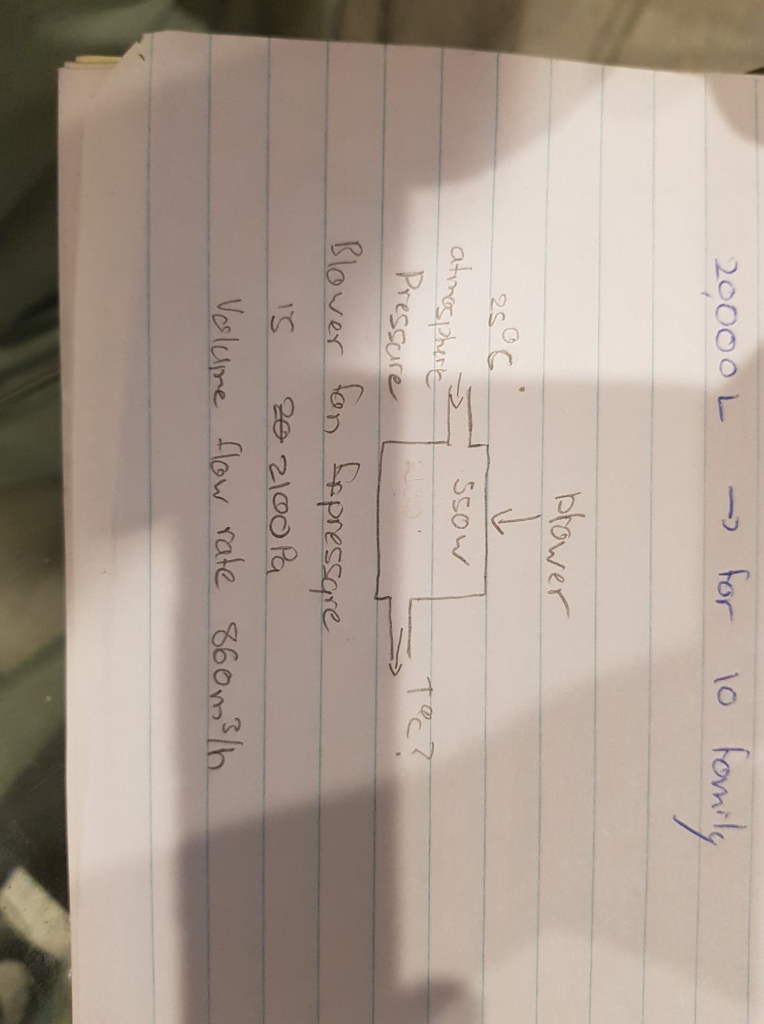 20,000 L → for 10 family
blower
25°C
550w
atmosphere
Pressure
T°C?
Blower fan pressure
is 2100 Pa
Volume flow rate 860m³/h